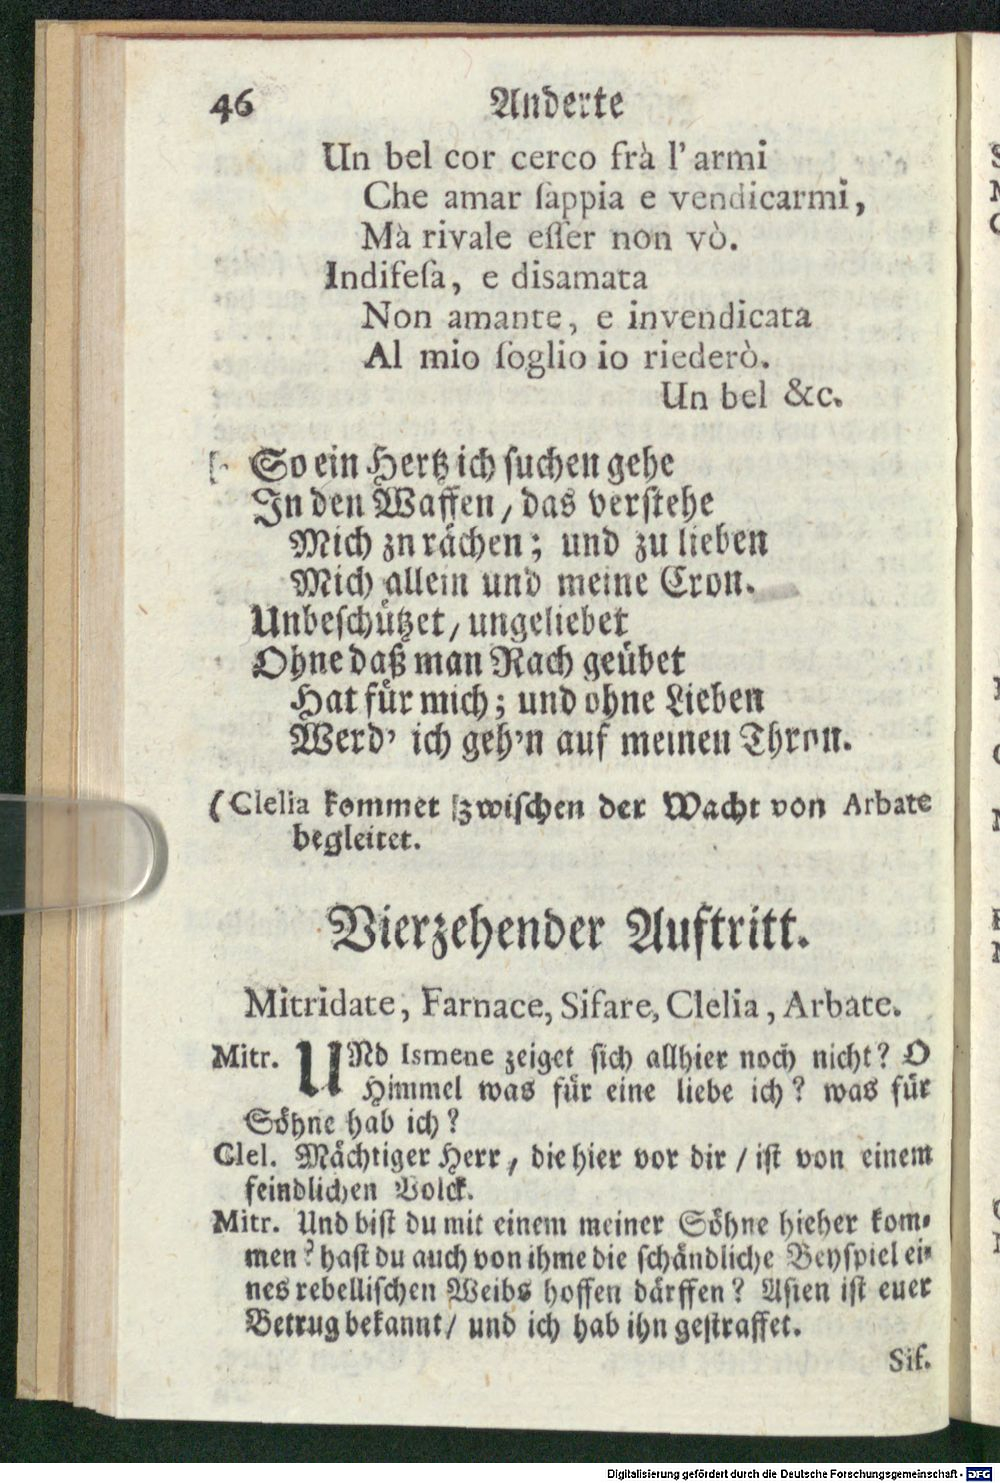 46 Anderte
Un bel cor cerco frà l' armi
Che amar ſappia e vendicarmi,
Mà rivale eſſer non vò.
Indifeſa, e disamata
Non amante, e invendicata
Al mio ſoglio io riederò.
Un bel &c.
So ein Hertz ich ſuchen gehe
In den Waffen / das verſtehe
Mich zn rächen; und zu lieben
Mich allein und meine Cron.
Unbeſchützet / ungeliebet
Ohne daß man Rach geübet
Hat für mich; und ohne Lieben
Werd' ich geh'n auf meinen Thron.
(Clelia kommet zwiſchen der Wacht von Arbate
begleitet.
Vierzehender Auftritt.
Mitridate, Farnace, Sifare, Clelia, Arbate.
Mitr. UNd Ismene zeiget ſich allhier noch nicht? O
Himmel was für eine liebe ich? was für
Söhne hab ich?
Clel. Mächtiger Herr, die hier vor dir / iſt von einem
feindlichen Volck.
Mitr. Und biſt du mit einem meiner Söhne hieher kom-
men? haſt du auch von ihme die ſchändliche Beyſpiel ei-
nes rebelliſchen Weibs hoffen därffen? Aſien iſt euer
Betrug bekannt / und ich hab ihn geſtraffet.
Sif.
Digitalisierung gefördert durch die Deutsche Forschungsgemeinschaft - DFG